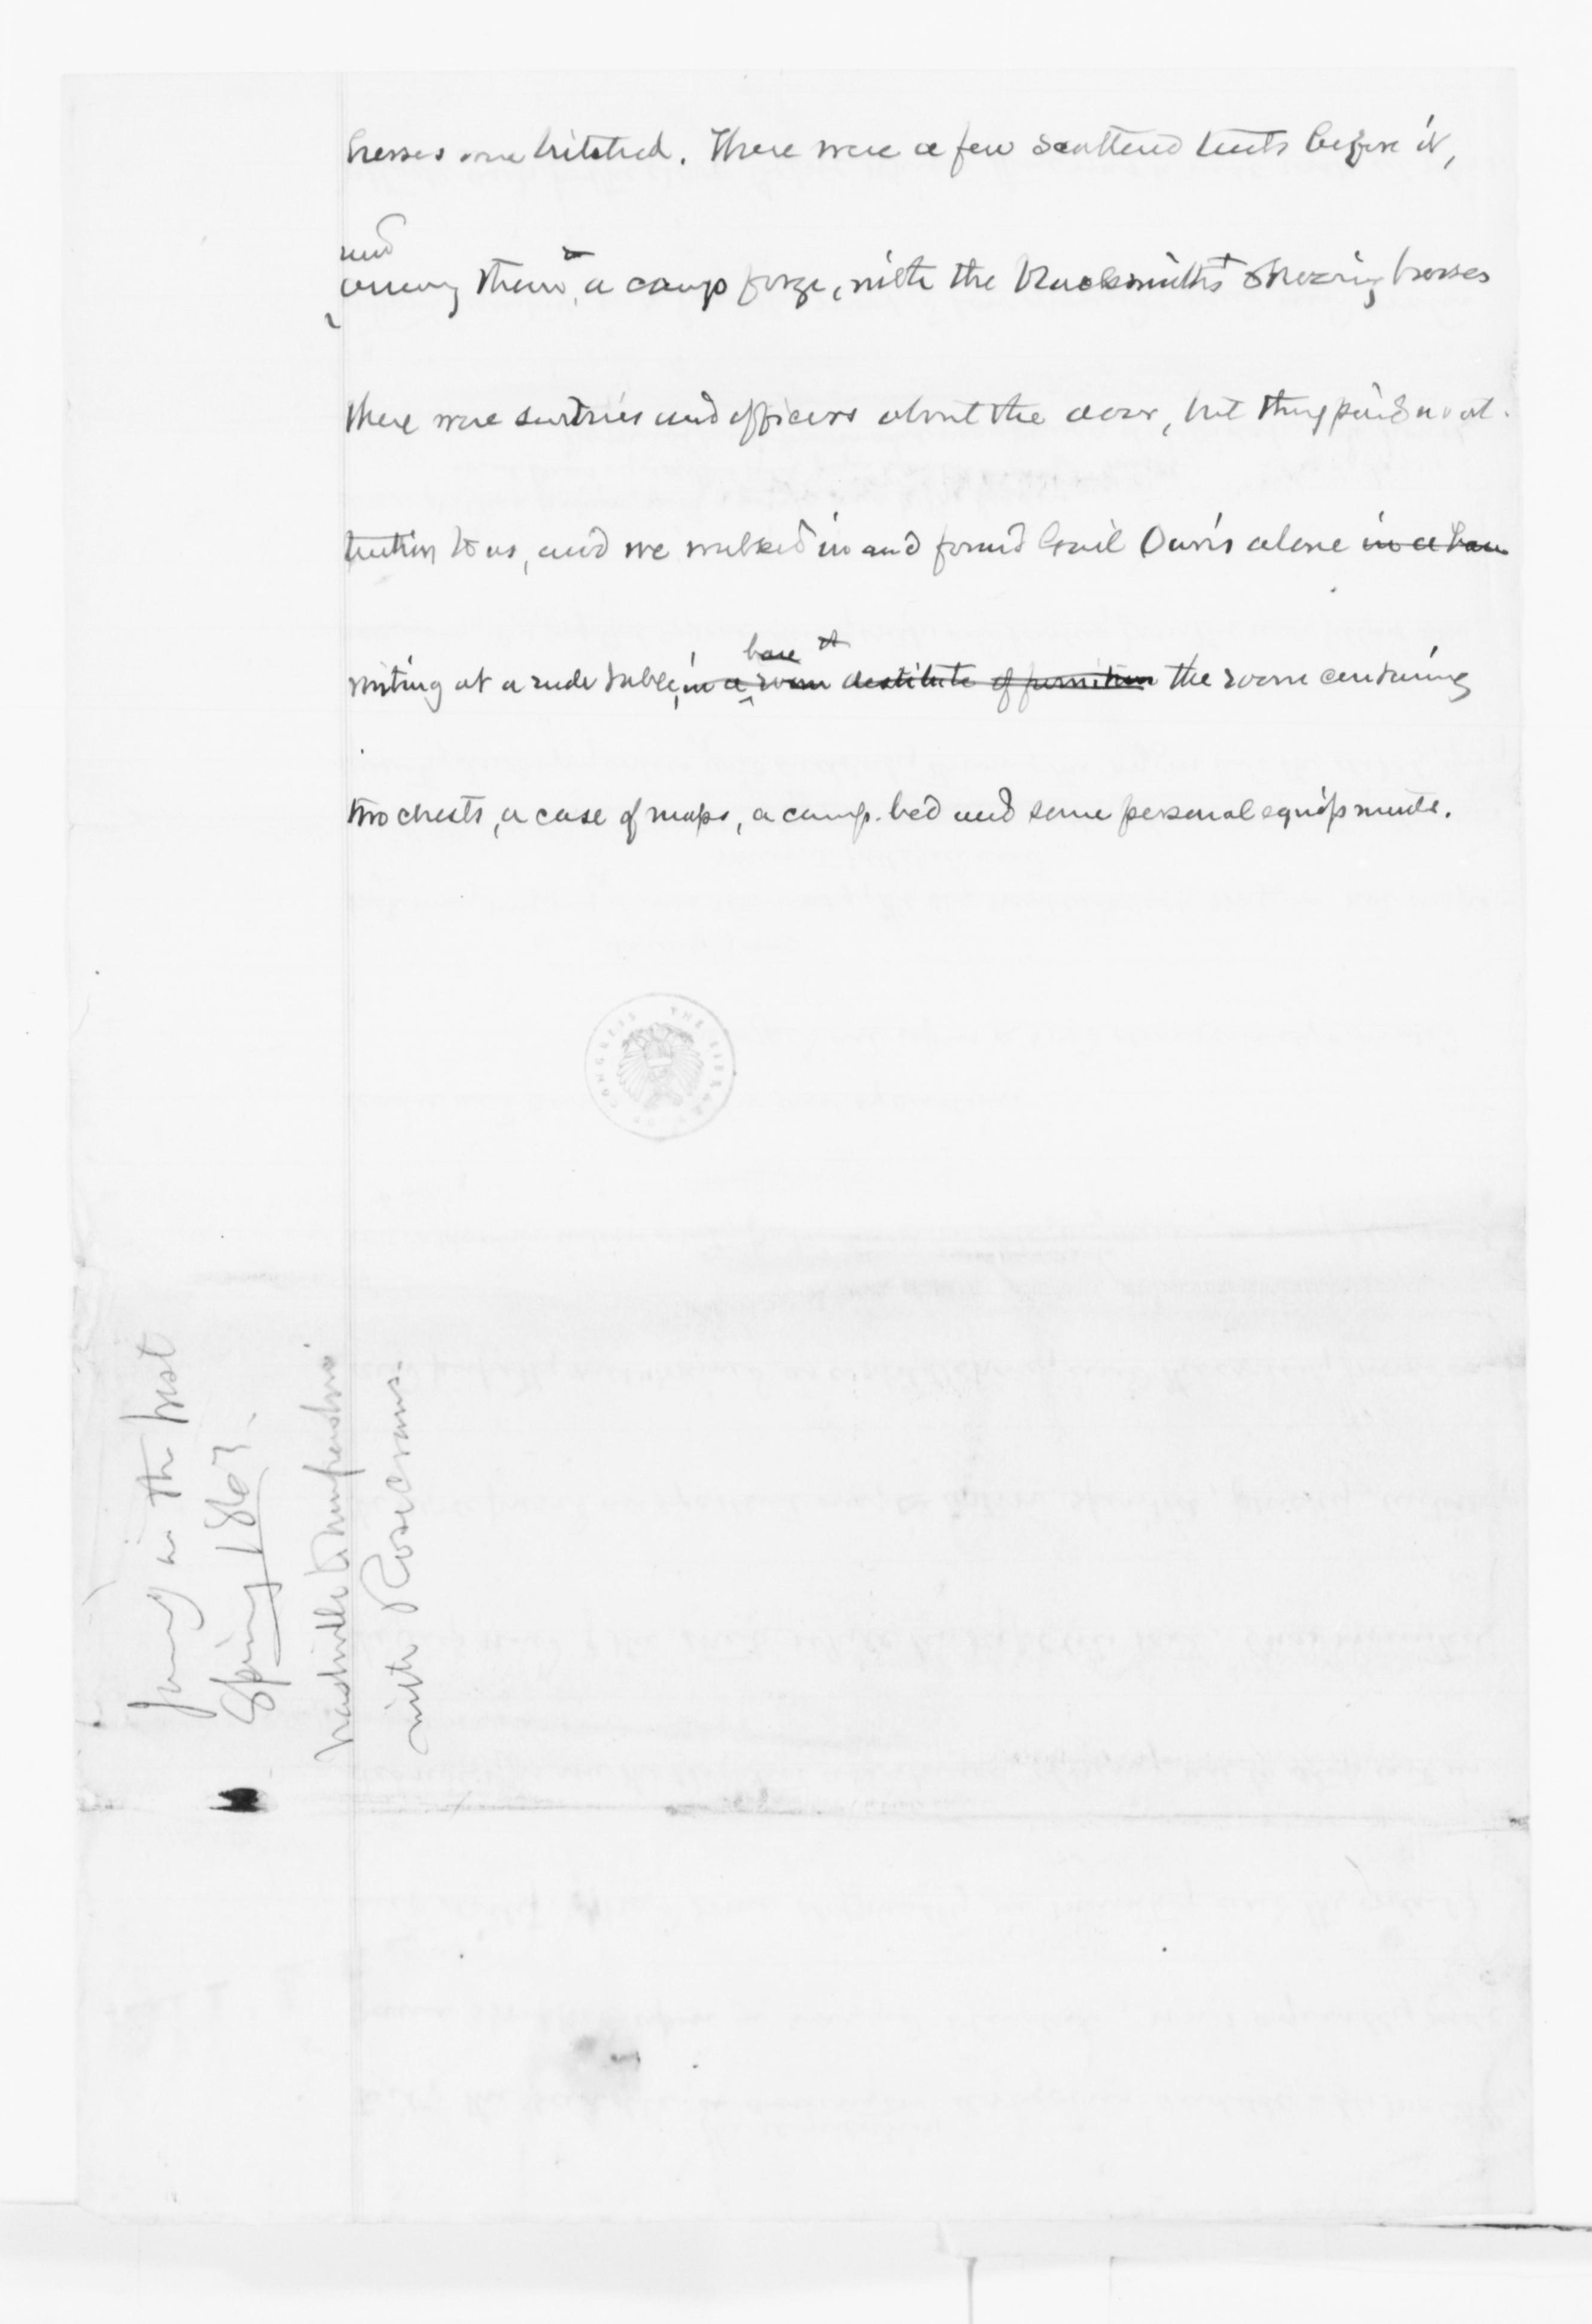 horses were hitched. There were a few scattered tents before it,
and
among them, a camp forge, with the blacksmiths shoeing horses
there were sentries and officers about the door, but they paid no at-
tention to us, and we walked in and found Genl Davis alone in a bare
bare
writing at a rude table, in a room destitute of furniture the room containing
two chests, a case of maps, a camp-bed and some personal equipments.
THE LIBRARY OF CONGRESS
Journey in the West
Spring 1863.
Nashville & Murfreesboro
with Rosecrans.